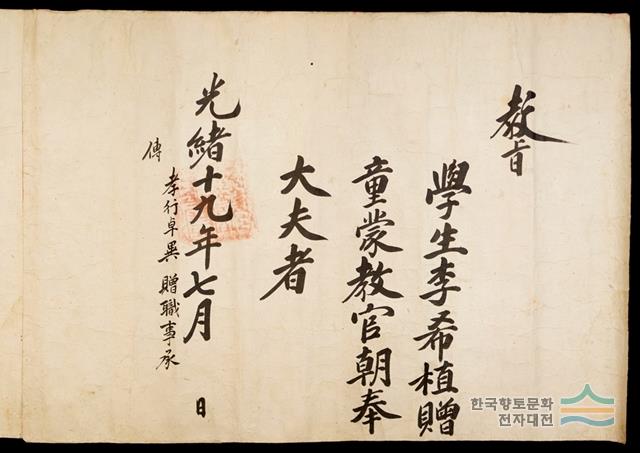 教旨
學生李希植贈
童蒙教官朝奉
大夫者
光緖十九年七月 日
孝行卓異 贈職事承
傳
한국향토문화
전자대전